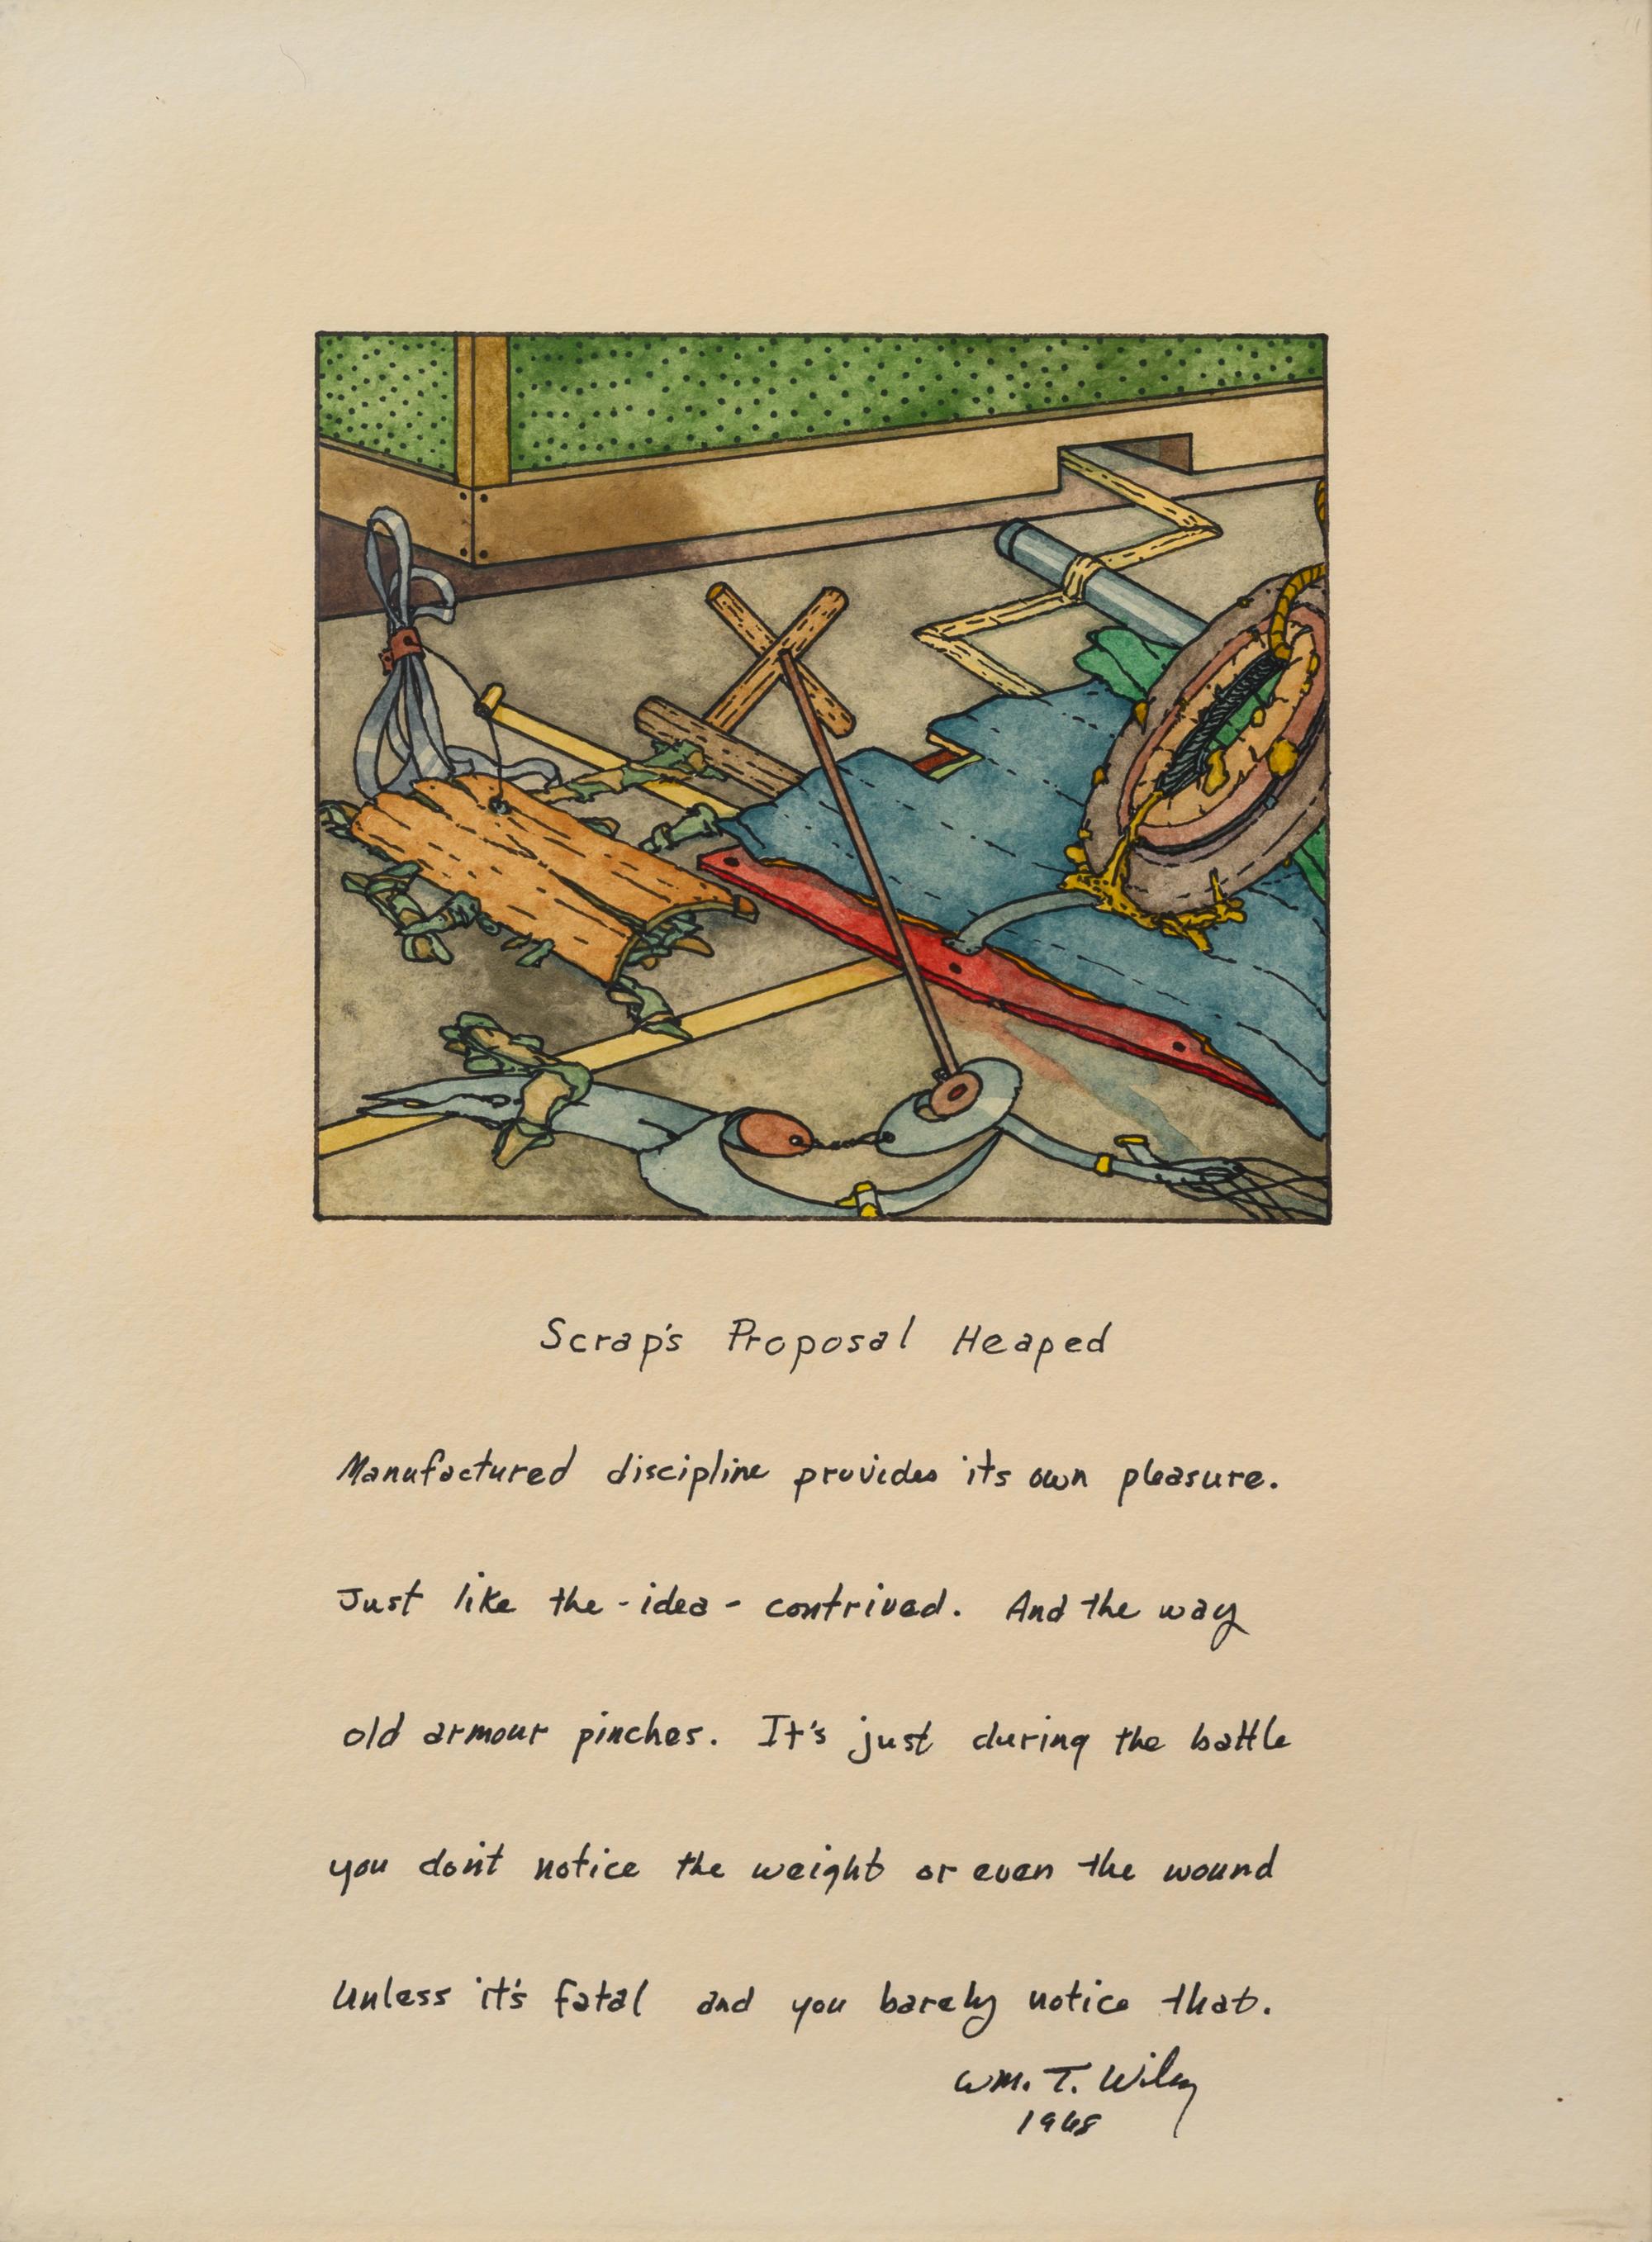 Scrap's Proposal Heaped
Manufactured discipline provides its own pleasure.
Just like the - idea - contrived. And the way
old armour pinches. It's just during the battle
you don't notice the weight or even the wound
Unless it's fatal and you barely notice that.
Wm. T. Wiley
1968